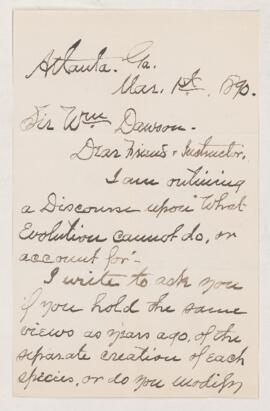 Atlanta. Ga.
Mar. 1st. 1890.
Sir Wm Dawson.
Dear Friend & Instructor,
I am outlining
a Discourse upon "What
Evolution cannot do, or
account for".
I write to ask you
if you hold the same
views as years ago, of the
separate creation of each
species, or do you modify